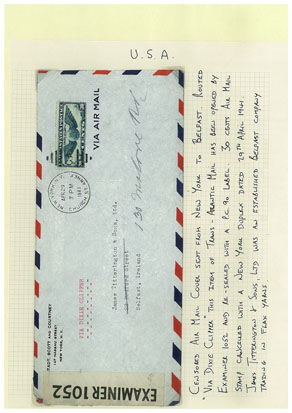 U.S.A.
VIA AIR MAIL
NEW YORK, N.Y.
APR 29
7 PM
1941
James Titterington & Sons, Ltd.
Belfast, Ireland
VIA DIXIE CLIPPER
SCOTT AND COURTNEY
NEW YORK, N.Y.
EXAMINER 1052
CENSORED AIR MAIL COVER SENT FROM NEW YORK TO BELFAST. ROUTED
"VIA DIXIE CLIPPER THIS ITEM OF TRANS-ATLANTIC MAIL HAS BEEN OPENED BY
EXAMINER 1052 AND RE-SEALED WITH A PC 90 LABEL 30 CENTS AIR MAIL
STAMP CANCELLED WITH A NEW YORK DUPLEX DATED 29TH APRIL 1941.
JAMES TITTERINGTON & SONS, LTD WAS AN ESTABLISHED BELFAST COMPANY
TRADING IN FLAX YARNS.